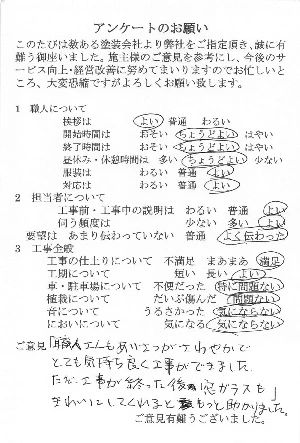 アンケートのお願い
このたびは数ある塗装会社より弊社をご指定頂き、誠に有
難う御座いました。施主様のご意見を参考にし、今後のサ
ービス向上・経営改善に努めてまいりますのでお忙しいと
ころ、大変恐縮ですがよろしくお願い致します。
1 職人について
挨拶は よい 普通 わるい
開始時間は おそい ちょうどよい はやい
終了時間は おそい ちょうどよい はやい
昼休み・休憩時間は 多い ちょうどよい 少ない
服装は わるい 普通 よい
対応は わるい 普通 よい
2 担当者について
工事前・工事中の説明は わるい 普通 よい
伺う頻度は 少ない 多い よい
要望は あまり伝わっていない 普通 よく伝わった
3 工事全般
工事の仕上りについて 不満足 まあまあ 満足
工期について 短い 長い よい
車・駐車場について 不便だった 特に問題ない
植栽について だいぶ傷んだ 問題ない
音について うるさかった 気にならない
においについて 気になる 気にならない
ご意見 職人さんもあいさつがさわやかで
とても気持ち良く工事ができました。
ただ工事が終った後 窓ガラスも
きれいにしてくれると もっと助かりました。
ご意見有難うございました。